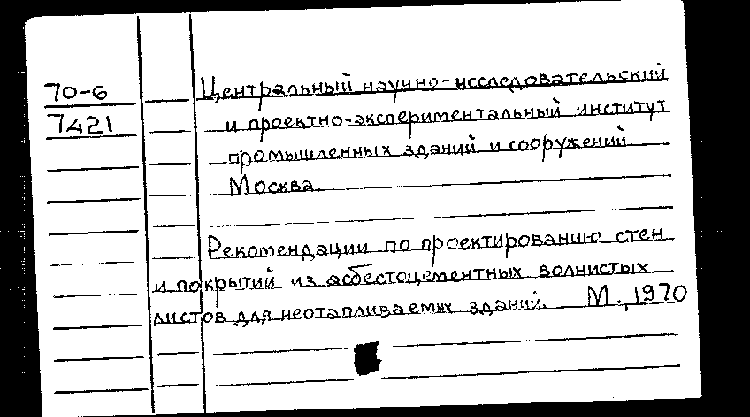 70-6
7421
Центральный научно-исследовательский
и проектно-экспериментальный институт
промышленных зданий и сооружений
Москва.
Рекомендации по проектированию стен
и покрытий из асбестоцементных волнистых
листов для неотапливаемых зданий. М., 1970